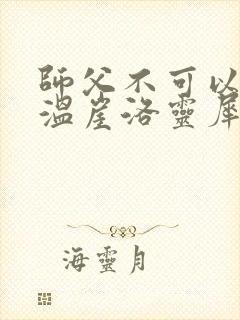 師父不可以
溫崖洛靈犀
海靈月